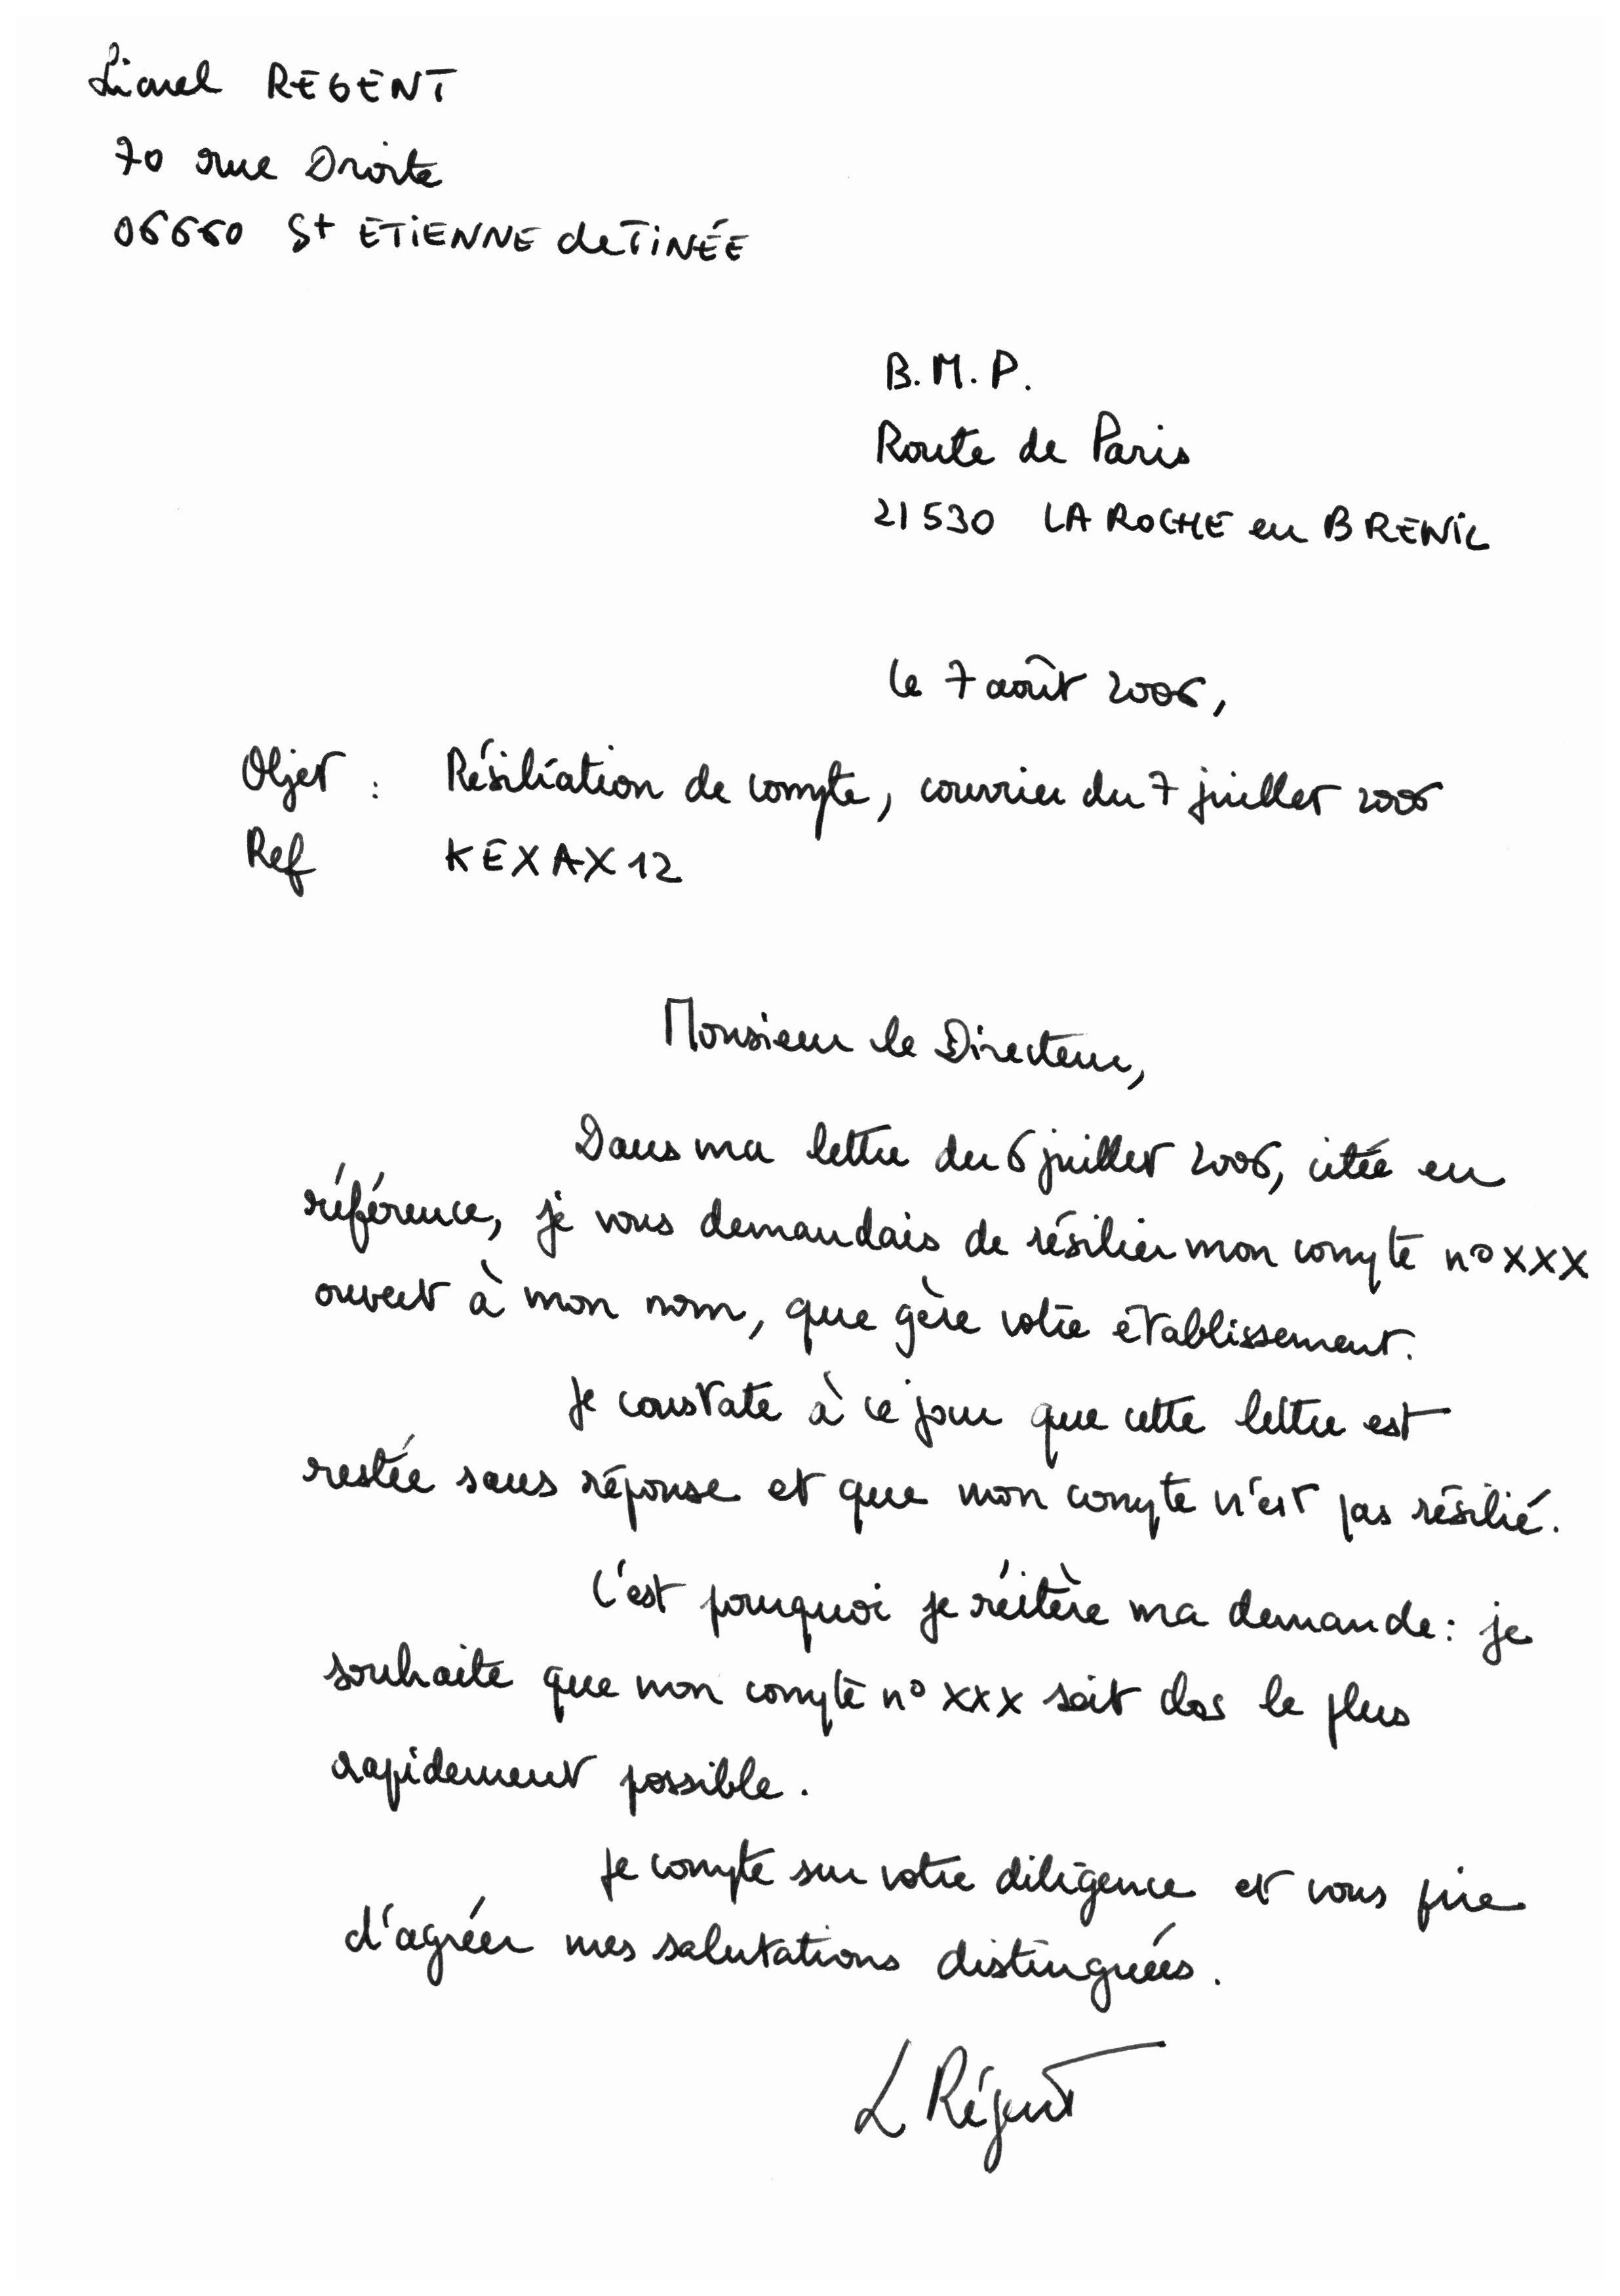 Lionel REGENT
70 rue Droite
06660 St ETIENNE de TINÉE
B.M.P.
Route de Paris
21530 LA ROCHE en BRENIL
le 7 août 2006,
Objet : Résiliation de compte, courrier du 7 juillet 2006
Ref KEXAX12
Monsieur le Directeur,
Dans ma lettre du 6 juillet 2006, citée en
référence, je vous demandais de résilier mon compte n° XXX
ouvert à mon nom, que gère votre établissement.
Je constate à ce jour que cette lettre est
restée sans réponse et que mon compte n'est pas résilié.
C'est pourquoi je réitère ma demande : je
souhaite que mon compte n° XXX soit clos le plus
rapidement possible.
Je compte sur votre diligence et vous prie
d'agréer mes salutations distinguées.
L Régent